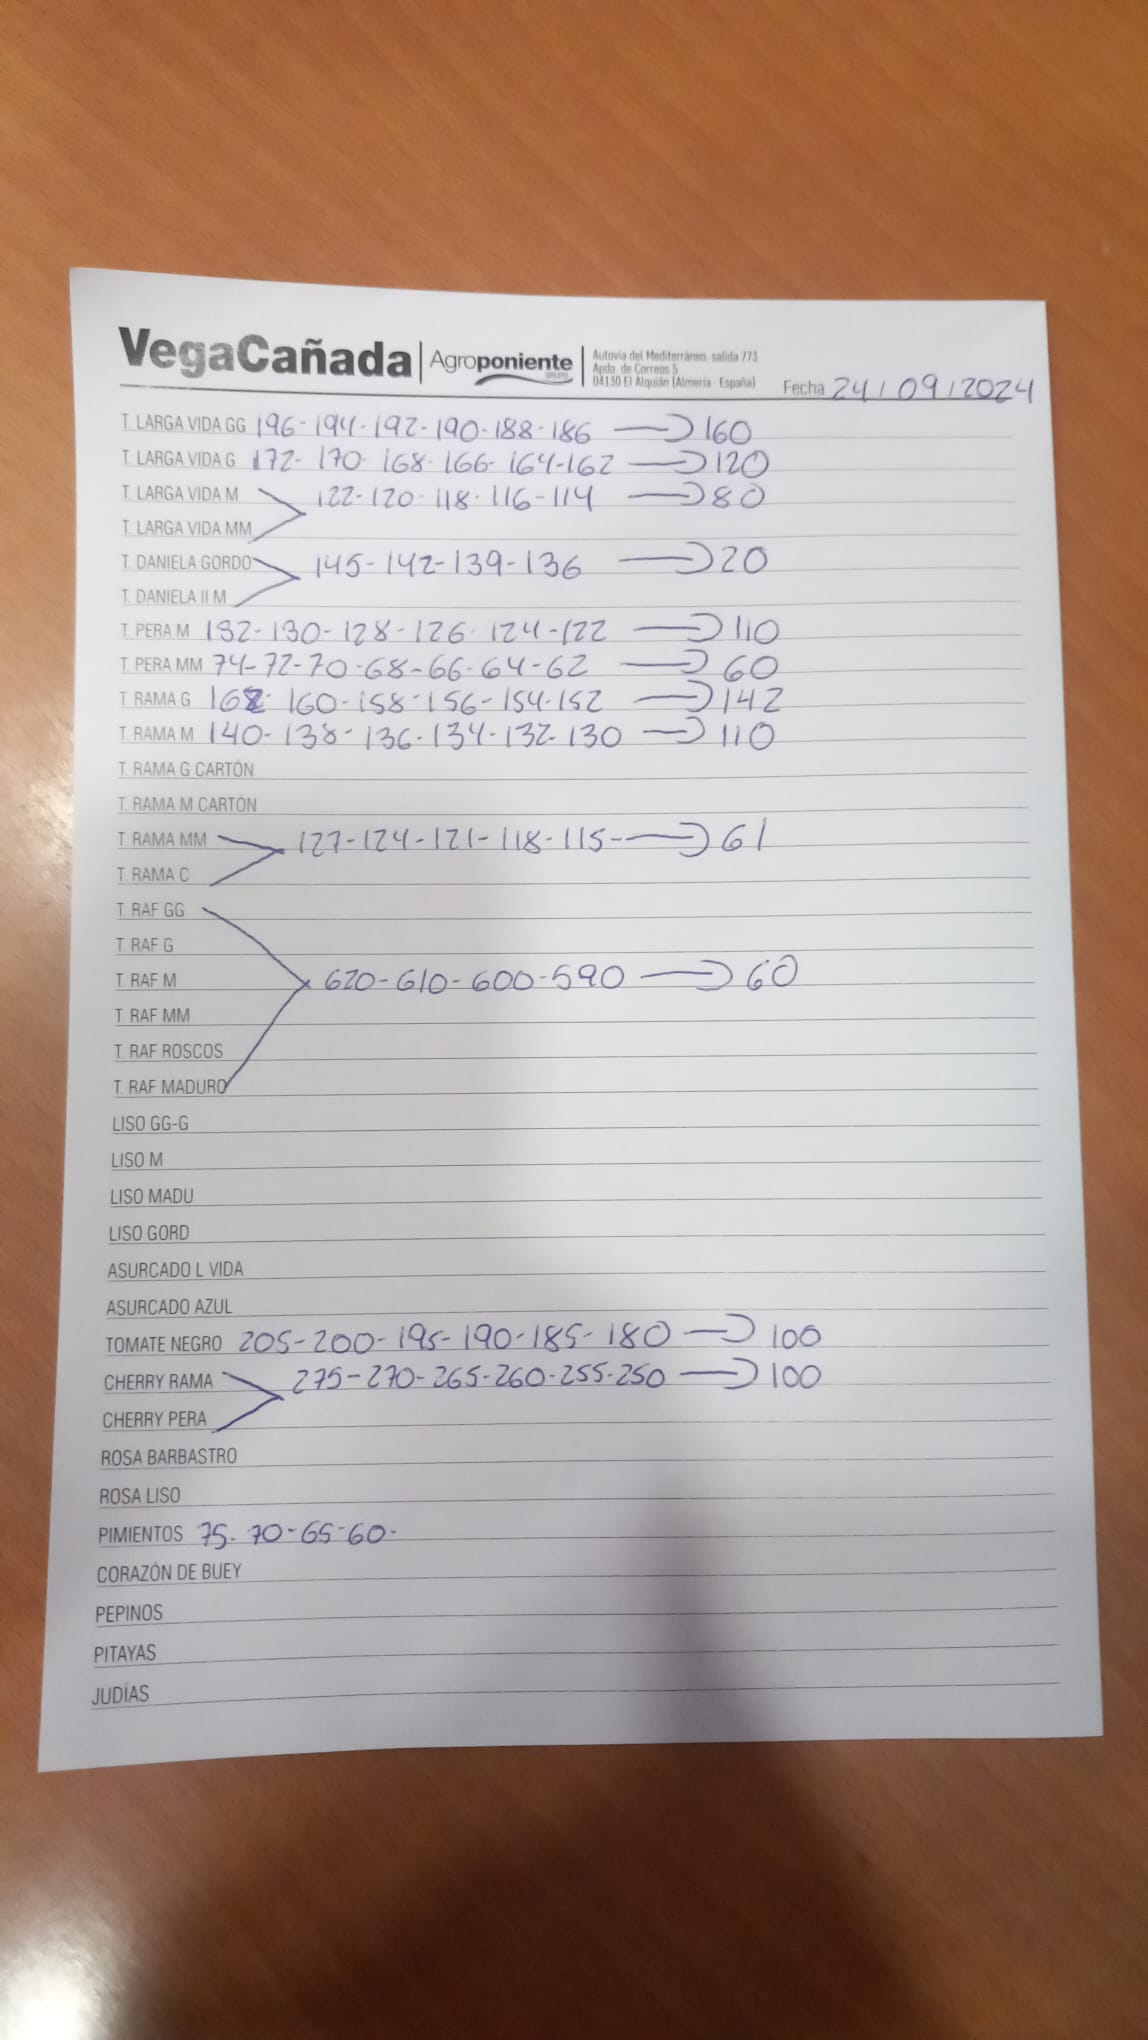 VegaCañada | Agroponiente GRUPO
Autovía del Mediterráneo, salida 773
Apdo. de Correos 5
04130 El Alquián (Almería - España)
Fecha 24 / 09 / 2024
T. LARGA VIDA GG 196-194-192-190-188-186 → 160
T. LARGA VIDA G 172-170-168-166-164-162 → 120
T. LARGA VIDA M 122-120-118-116-114 → 80
T. LARGA VIDA MM
T. DANIELA GORDO 145-142-139-136 → 20
T. DANIELA II M
T. PERA M 132-130-128-126-124-122 → 110
T. PERA MM 74-72-70-68-66-64-62 → 60
T. RAMA G 162-160-158-156-154-152 → 142
T. RAMA M 140-138-136-134-132-130 → 110
T. RAMA G CARTÓN
T. RAMA M CARTÓN
T. RAMA MM 127-124-121-118-115- → 61
T. RAMA C
T. RAF GG
T. RAF G
T. RAF M 620-610-600-590 → 60
T. RAF MM
T. RAF ROSCOS
T. RAF MADURO
LISO GG-G
LISO M
LISO MADU
LISO GORD
ASURCADO L VIDA
ASURCADO AZUL
TOMATE NEGRO 205-200-195-190-185-180 → 100
CHERRY RAMA 275-270-265-260-255-250 → 100
CHERRY PERA
ROSA BARBASTRO
ROSA LISO
PIMIENTOS 75-70-65-60-
CORAZÓN DE BUEY
PEPINOS
PITAYAS
JUDÍAS